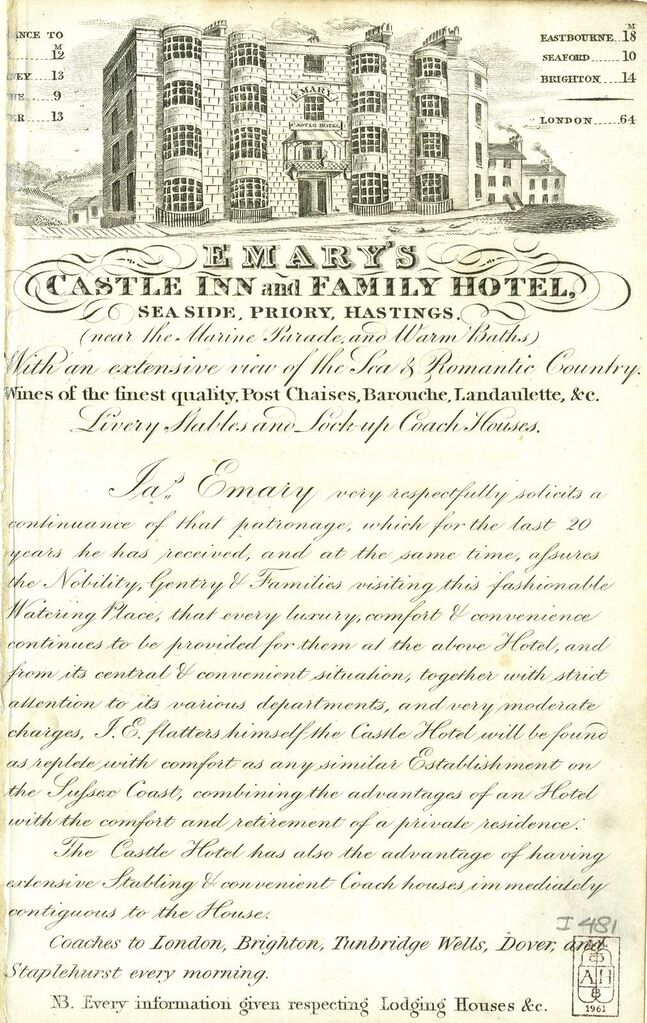 ANCE TO
M
12
NEY.....13
9
ER.....13
M
EASTBOURNE.18
SEAFORD......10
BRIGHTON....14
LONDON.....64
EMARY
CASTLE HOTEL
EMARY'S
CASTLE INN and FAMILY HOTEL,
SEA SIDE, PRIORY, HASTINGS.
(near the Marine Parade, and Warm Baths)
With an extensive view of the Sea & Romantic Country.
Wines of the finest quality, Post Chaises, Barouche, Landaulette, &c.
Livery Stables and Lock-up Coach Houses.
Jas. Emary very respectfully solicits a
continuance of that patronage, which for the last 20
years he has received, and at the same time, aſsures
the Nobility, Gentry & Families visiting this fashionable
Watering Place, that every luxury, comfort & convenience
continues to be provided for them at the above Hotel, and
from its central & convenient situation, together with strict
attention to its various departments, and very moderate
charges, J.E. flatters himself the Castle Hotel will be found
as replete with comfort as any similar Establishment on
the Suſsex Coast, combining the advantages of an Hotel
with the comfort and retirement of a private residence.
The Castle Hotel has also the advantage of having
extensive Stabling & convenient Coach houses immediately
contiguous to the House.
Coaches to London, Brighton, Tunbridge Wells, Dover, and
Staplehurst every morning.
NB. Every information given respecting Lodging Houses &c.
I 481
A H
1961